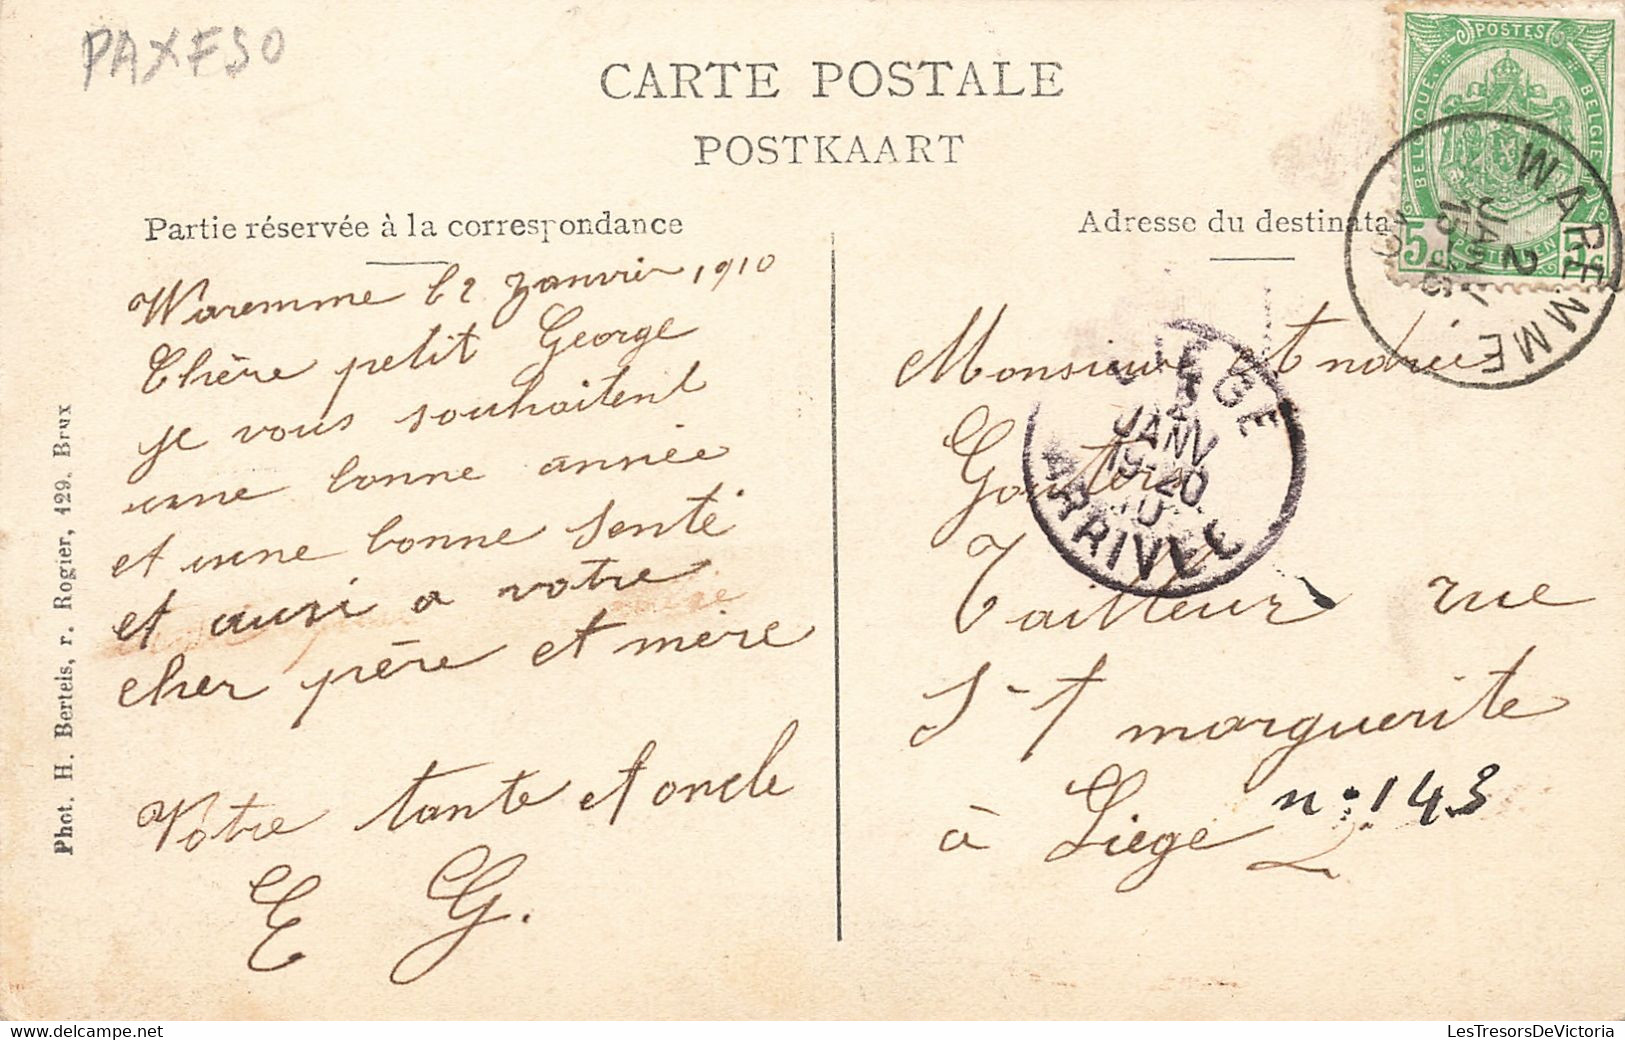 PAXFSO
CARTE POSTALE
POSTKAART
Partie réservée à la correspondance
Adresse du destinata
POSTES
BELGIQUE BELGIE
5 5
WAREMME
2
JANV
LIEGE
2
JANV
19-20
10
ARRIVEE
Waremme le 2 Janvier 1910
Chère petit George
je vous souhaitent
une bonne année
et une bonne senté
et ausi a votre
cher père et mère
Votre tante et oncle
E G.
Monsieur Andrée
Tailleur rue
S-t marguerite
à Liège n° 143
Phot. H. Bertels, r. Rogier, 129. Brux
LesTresorsDeVictoria
delcampe.net